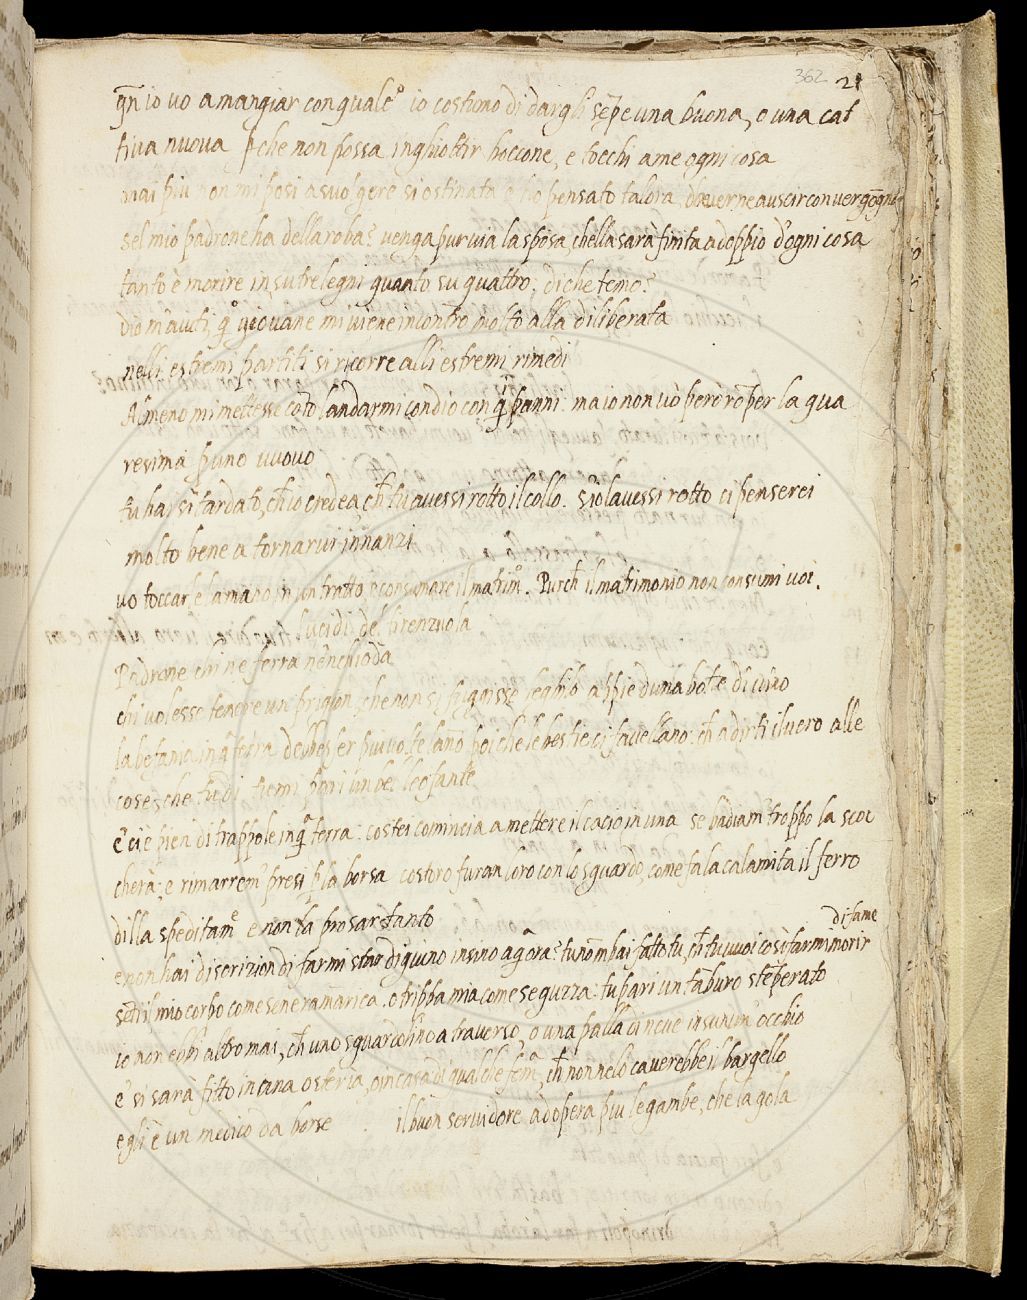 362 21
qñ io vo a mangiar con qualc° io costumo di dargli sẽpe una buona, o una cat
tiva nuova p̱ che non possa inghiottir boccone, e tocchi a me ogni cosa
mai più non mi posi a svolgere sì ostinata e ho pensato talora d'haverne a uscir con vergõgna
sel mio padrone ha della roba? venga pur via la sposa, chella sarà finita a doppio d'ogni cosa
tanto è morire in su tre legni quanto su quattro; di che temo?
dio m'aiuti, q° giovane mi viene incontro molto alla diliberata
nelli estremi partiti si ricorre alli estremi rimedi
Almeno mi mettesse cõto landarmi con dio con q̃ panni: ma io non vò però rõper la qua
resima p uno vuovo
tu hai sì tardato, ch' io credea, ch' tu avessi rotto il collo. s'io lavessi rotto ci penserei
molto bene a tornarvi innanzi
vo toccarle la mano in un tratto, e consumare il matrim°. Purch' il matrimonio non consumi voi.
lucidi del firenzuola
Padrone chi ne ferra nẽnchioda
chi volesse tenere un prigion che non si fuggisse leghilo a piè duna botte di vino
la befania in q̃ terra debb'esser più volte lanno poi che le bestie ci favellano: ch' a dirti il vero alle
cose, che tu di tu mi pari un bel leofante
E' ci è pien di trappole in q̃ terra: costei comincia a mettere il cacio in una se badiam troppo la scoc
cherà; e rimarrem presi p la borsa costoro furan loro con lo sguardo, come fa la calamita il ferro
dilla speditam̃ e non la prosar tanto
di fame
e non hai discrizion di farmi star digiuno insino a q̃ ora? tu nõ m'hai fatto tu, ch' tu vuoi così farmi morir
sẽti il mio corpo come se ne ramãrica. o trippa mia come se guzza: tu pari un tãburo stẽperato
io non ebbi altro mai, ch' uno sguardolino a traverso, o una palla di neve in su num' occhio
e' si sarà fitto in una osteria, o in casa di qualche fem̃, ch' non nelo caverebbe il bargello
egli è un medico da borse il buon servidore adopera più le gambe, che la gola